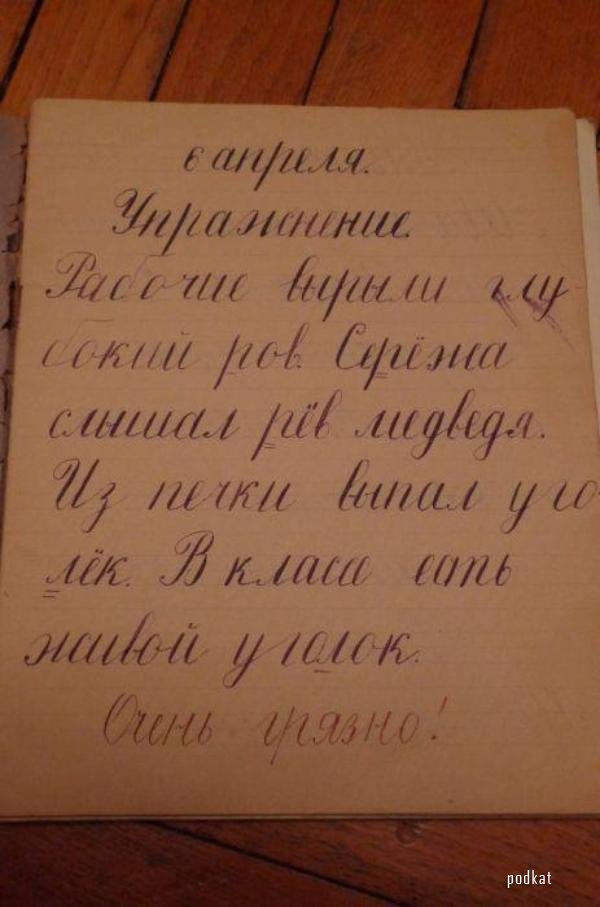 6 апреля.
Упражнение.
Рабочие вырыли глу-
бокий ров. Серёжа
слышал рёв медведя.
Из печки выпал уго-
лёк. В классе есть
живой уголок.
Очень грязно!
podkat